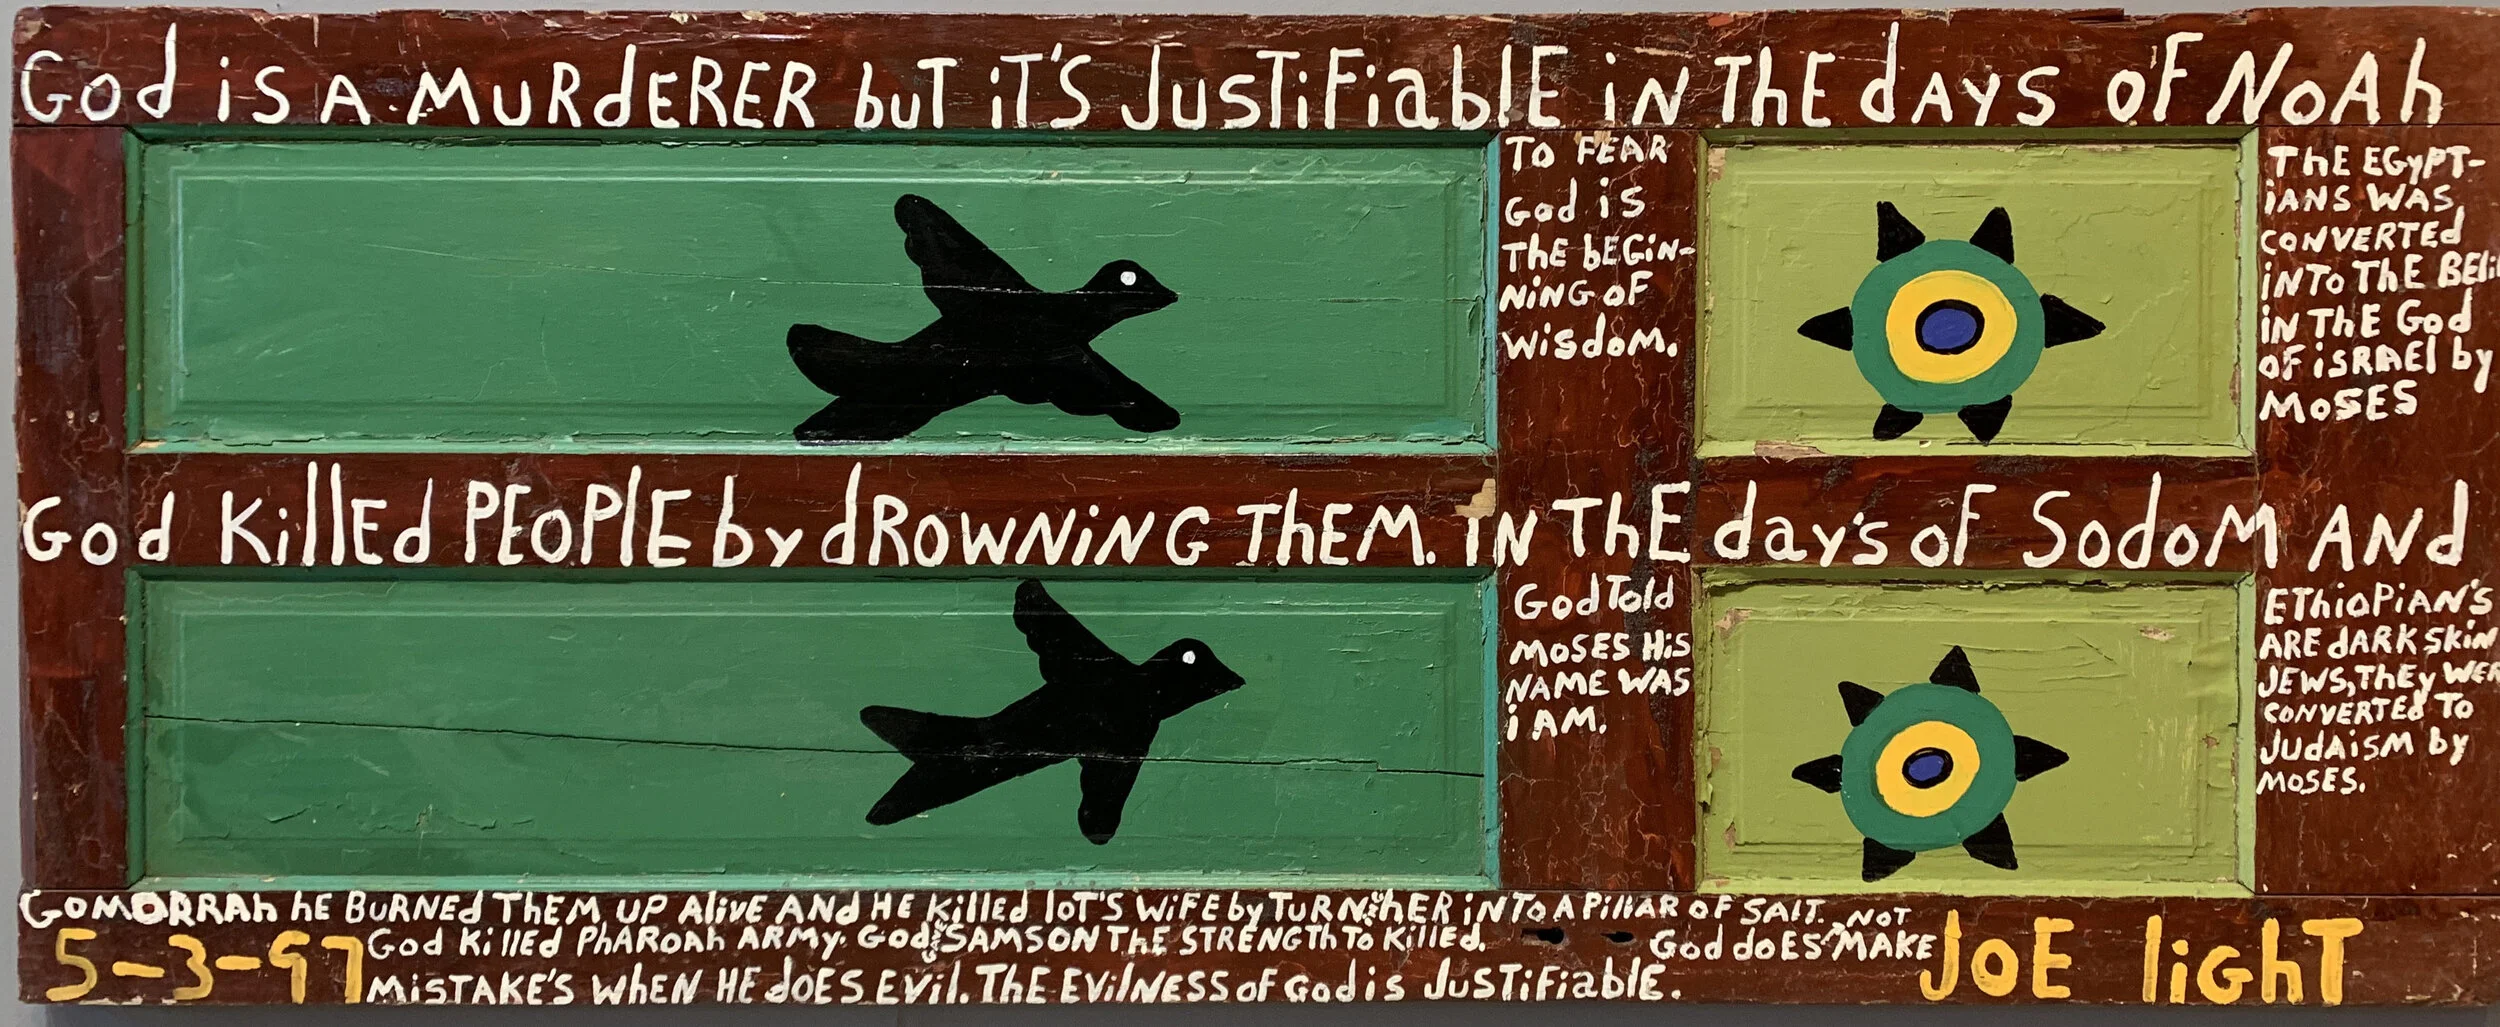 GOd iS A MURdERER buT iT'S JusTiFiablE iN ThE dAys OF NOAh
TO FEAR
God iS
THE bEGiN-
NiNG OF
WisdoM.
ThE EGyPT-
iANS WAS
CONVERTEd
iNTO ThE
iN ThE God
OF iSRAEl by
MOSES
God KillEd PEOPlE by dROWNiNG ThEM. IN ThE day's of SodoM ANd
God Told
MOSES His
NAME WAS
i AM.
EThioPiAN'S
ARE dARK SkiN
JEWS, ThEy
CONVERTEd TO
JudAiSM by
MOSES.
GOMORRAh hE BURNEd ThEM UP AlivE ANd HE KillEd loT'S WiFE by TURNiNG hER iNTO A PillAR OF SAlT.
God KillEd PhARoAh ARMy. God SAMSON ThE STRENGTh To KillEd. God doES NOT MAKE
MiSTAKE'S WhEN HE doES Evil. ThE EvilNESS of God is JusTiFiablE.
5-3-97
JOE lighT